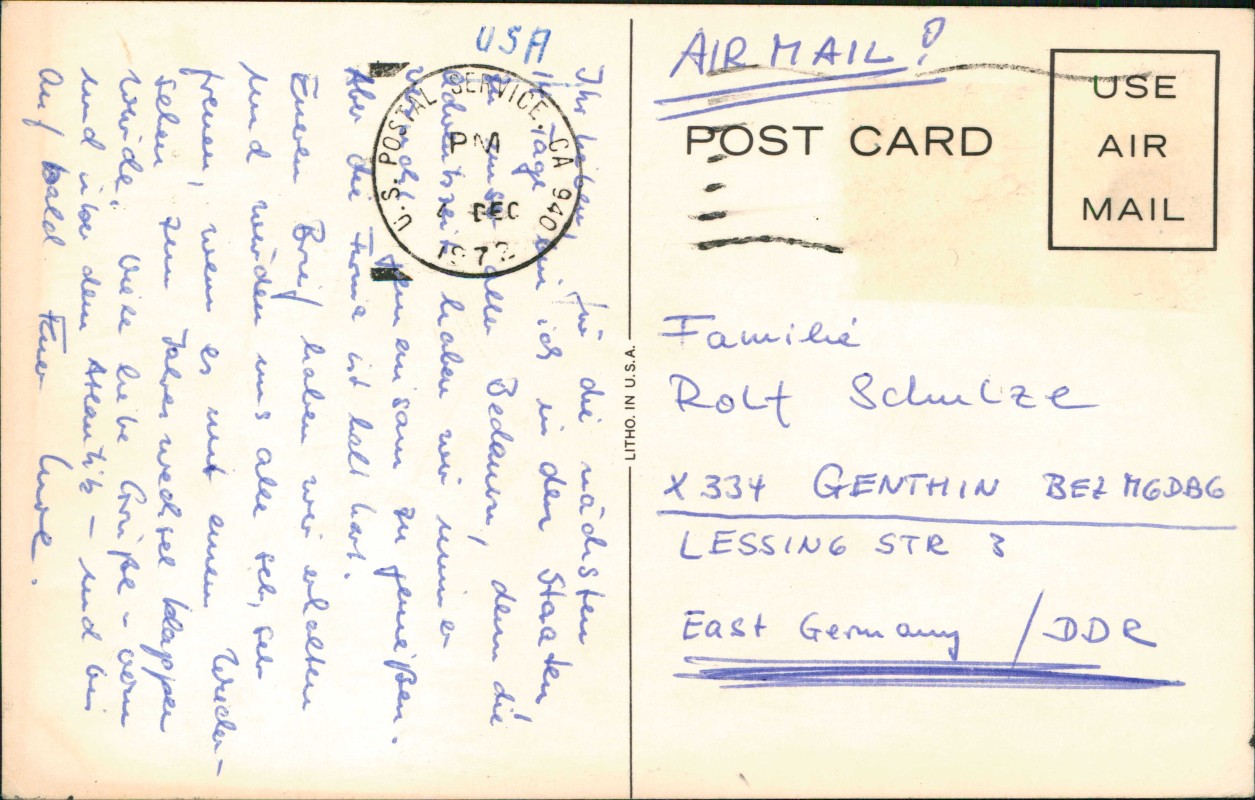 USA
Ihr Lieben! für die nächsten
Tage bin ich in den Staaten
zu unser aller Bedauern, denn die
Adventszeit haben wir immer
versucht gemeinsam zu genießen.
Aber die Firma ist halt hart.
Eueren Brief haben wir erhalten
und würden uns alle sehr, sehr
freuen, wenn es mit einem Wieder-
sehen zum Jahreswechsel klappen
würde. Viele liebe Grüße - vorn
und über dem Atlantik - und bin
Auf bald Euer
U.S. POSTAL SERVICE, CA 940
PM
4 DEC
1972
LITHO. IN U.S.A.
AIR MAIL!
POST CARD
USE
AIR
MAIL
Familie
Rolf Schulze
X 334 GENTHIN BEZ MGDBG
LESSING STR 3
East Germany / DDR